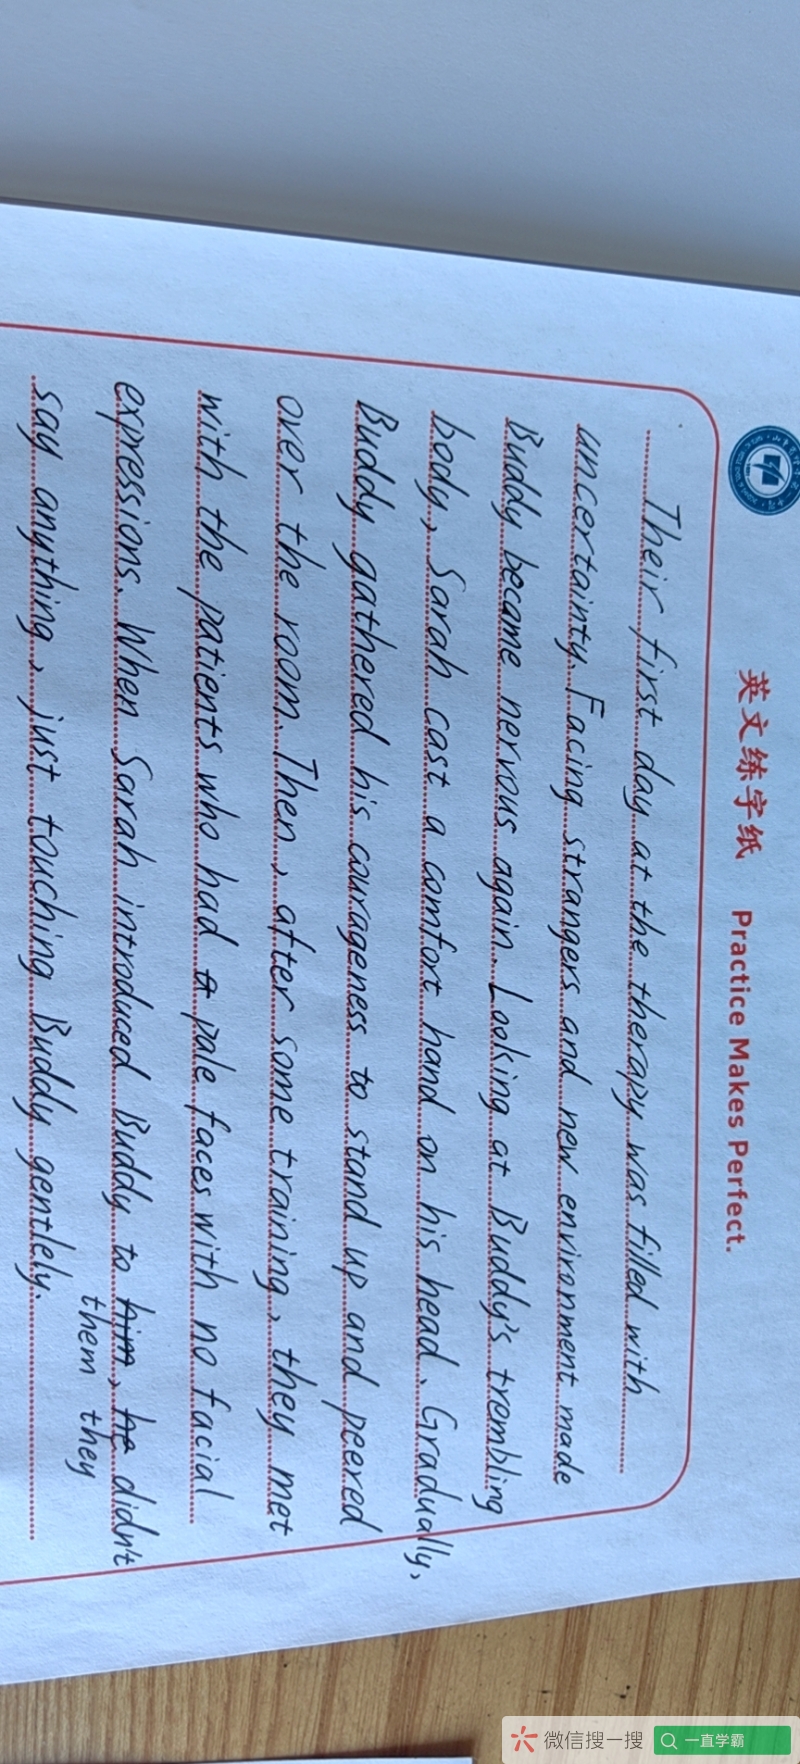 英文练字纸 Practice Makes Perfect.
Their first day at the therapy was filled with
uncertainty. Facing strangers and new environment made
Buddy became nervous again. Looking at Buddy's trembling
body, Sarah cast a comfort hand on his head. Gradually,
Buddy gathered his courageness to stand up and peered
over the room. Then, after some training, they met
with the patients who had a pale faces with no facial
expressions. When Sarah introduced Buddy to him, he didn't
them they
say anything, just touching Buddy gentlely.
微信搜一搜 一直学霸